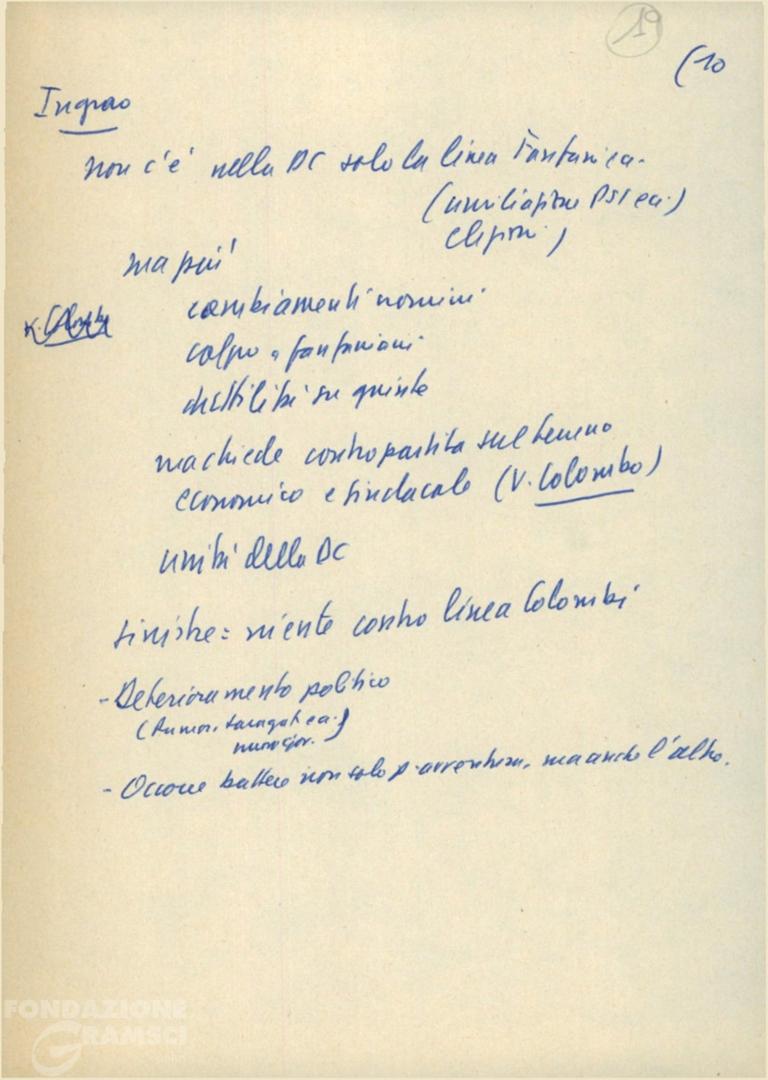 19
(10
Ingrao
non c'è nella DC solo la linea Fanfani ea.
(umiliazione PSI ea.)
elezioni)
ma più
cambiamenti nomini
colpo a fanfaniani
disponibilità su giunte
V. Colombo
ma chiede contropartita sul terreno
economico e sindacale (V. Colombo)
unità della DC
sinistre = niente contro linea Colombo
- Deterioramento politico
(Rumor, Saragat ea.)
- Occorre battere non solo p. avventura, ma anche l'altro.
FONDAZIONE
GRAMSCI